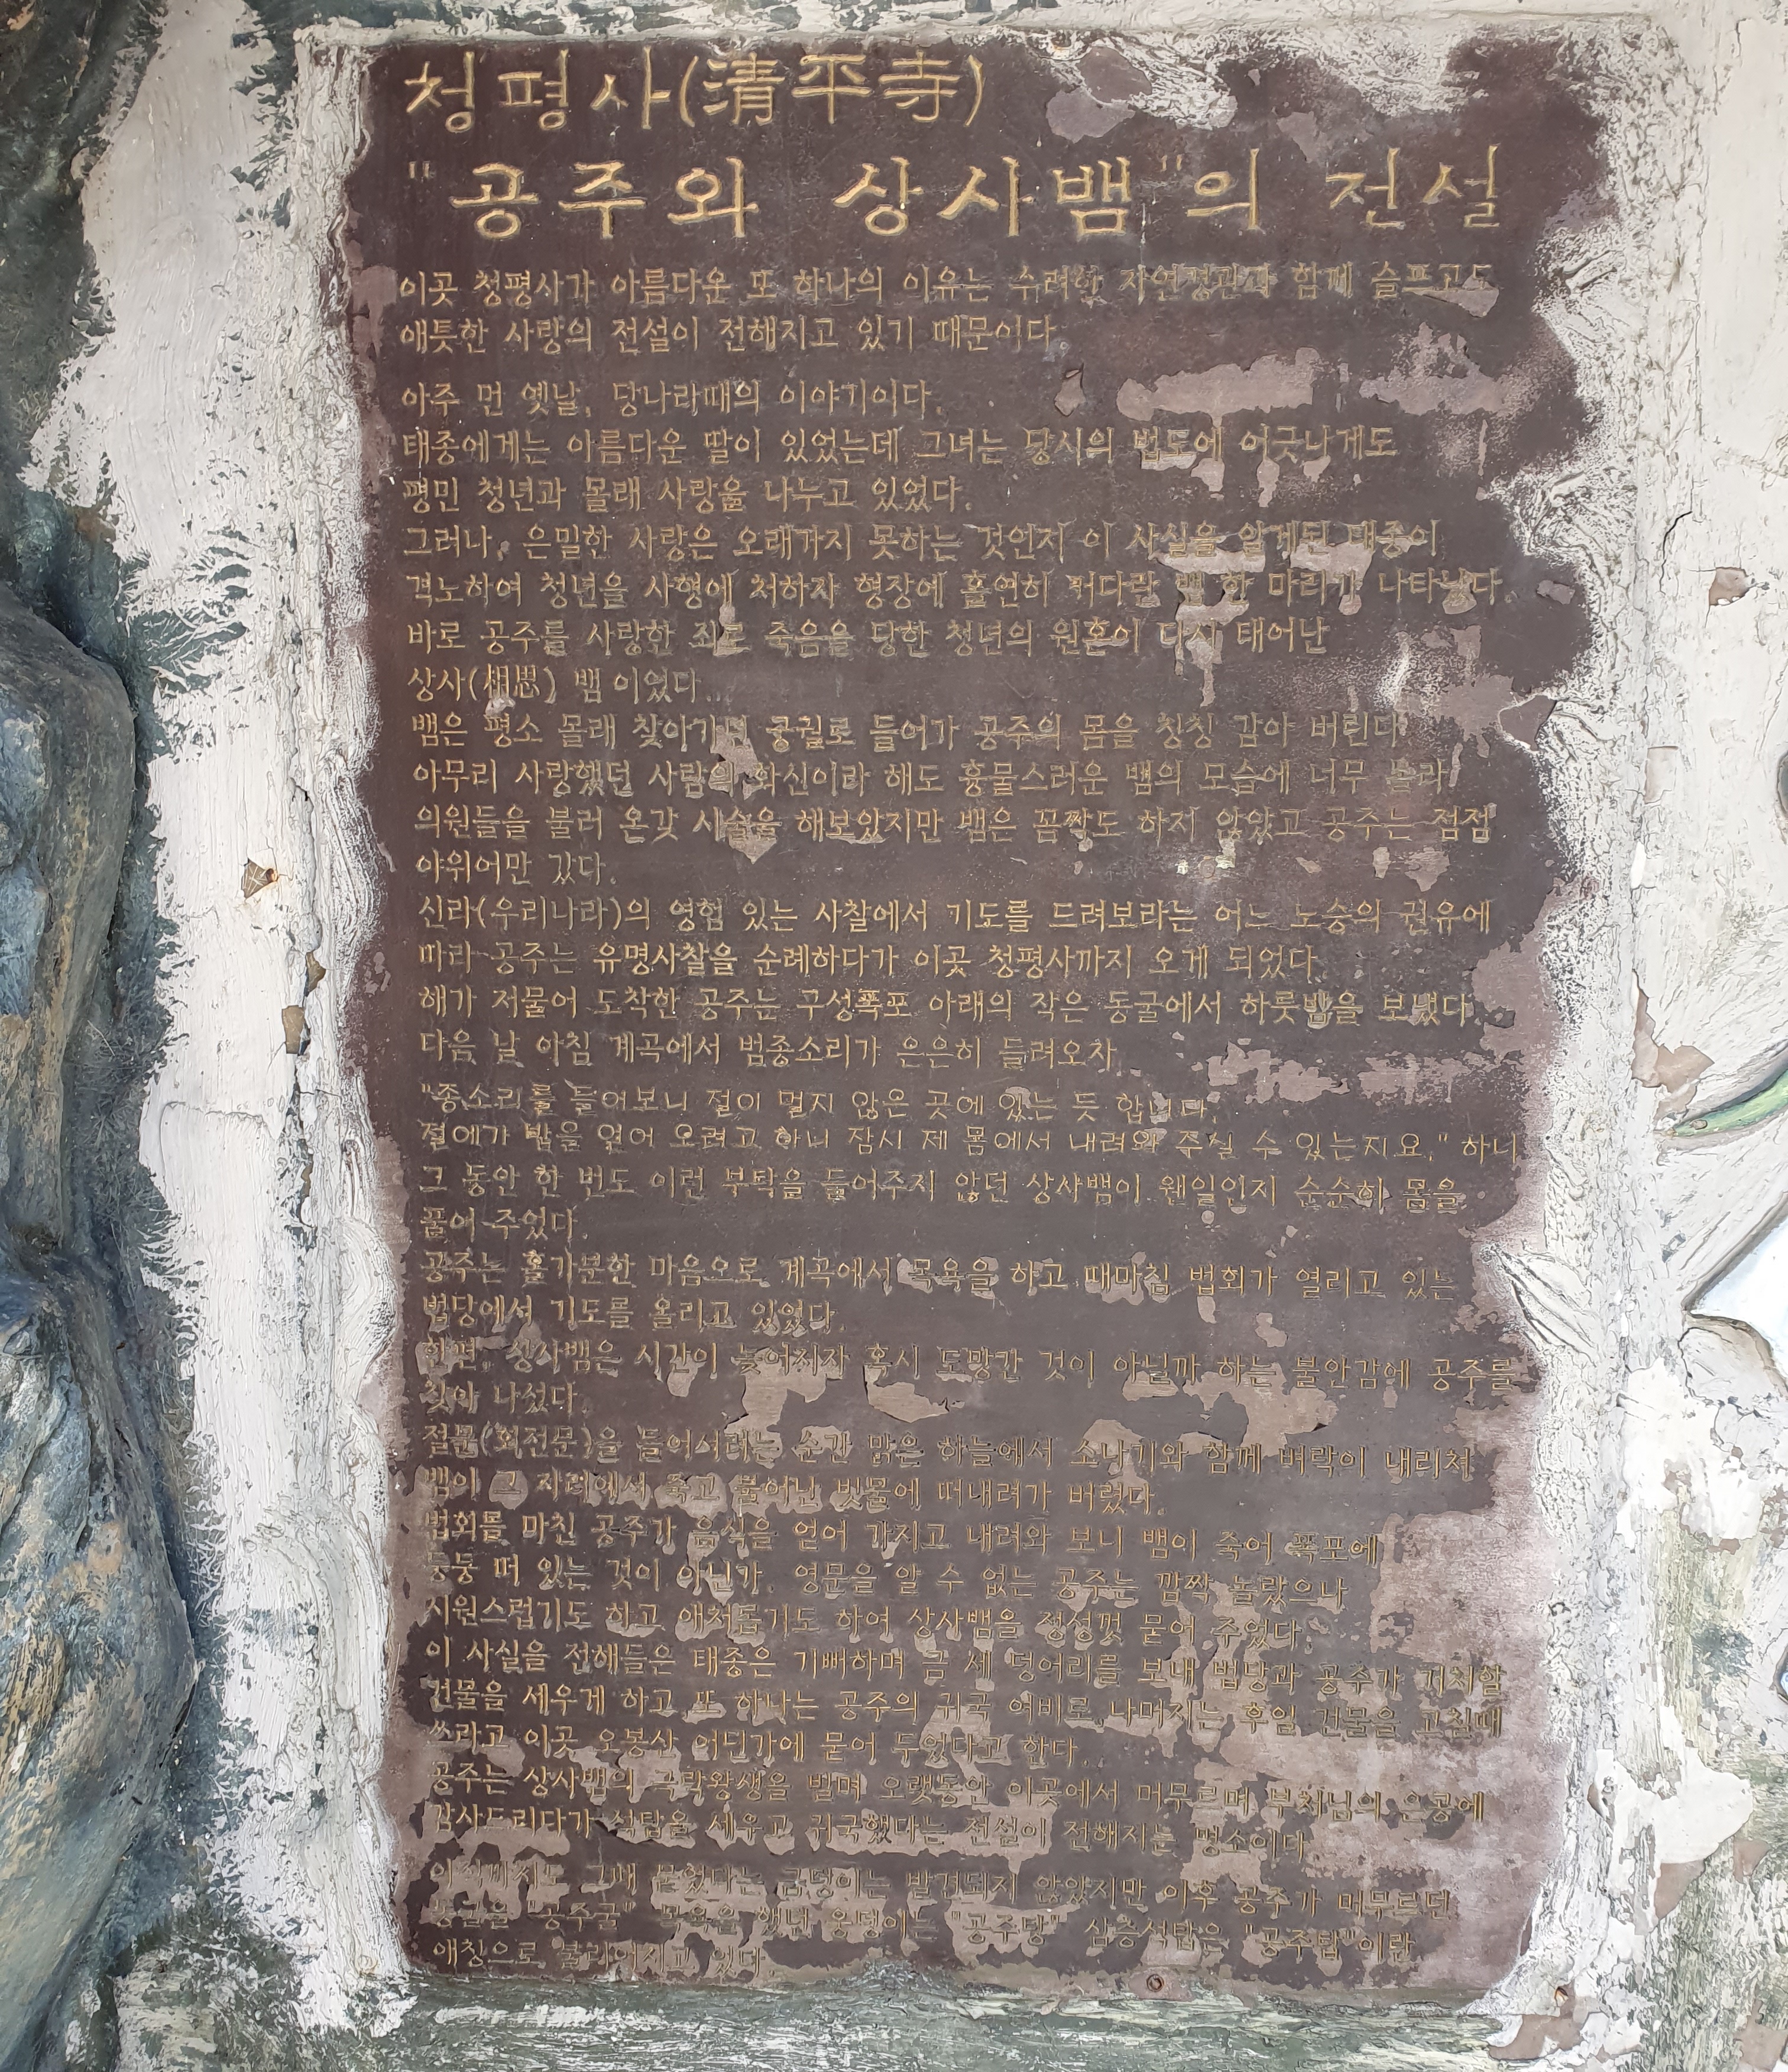 청평사(清平寺)
"공주와 상사뱀"의 전설
이곳 청평사가 아름다운 또 하나의 이유는 수려한 자연경관과 함께 슬프고도
애틋한 사랑의 전설이 전해지고 있기 때문이다.
아주 먼 옛날, 당나라때의 이야기이다.
태종에게는 아름다운 딸이 있었는데 그녀는 당시의 법도에 어긋나게도
평민 청년과 몰래 사랑을 나누고 있었다.
그러나, 은밀한 사랑은 오래가지 못하는 것인지 이 사실을 알게된 태종이
격노하여 청년을 사행에 처하자 형장에 홀연히 커다란 뱀 한 마리가 나타났다.
바로 공주를 사랑한 죄로 죽음을 당한 청년의 원혼이 다시 태어난
상사(相思) 뱀 이었다.
뱀은 평소 몰래 찾아가던 궁궐로 들어가 공주의 몸을 칭칭 감아 버린다
아무리 사랑했던 사람의 화신이라 해도 흉물스러운 뱀의 모습에 너무 놀라
의원들을 불러 온갖 시술을 해보았지만 뱀은 꼼짝도 하지 않았고 공주는 점점
야위어만 갔다.
신라(우리나라)의 영험 있는 사찰에서 기도를 드려보라는 어느 노승의 권유에
따라 공주는 유명사찰을 순례하다가 이곳 청평사까지 오게 되었다.
해가 저물어 도착한 공주는 구성폭포 아래의 작은 동굴에서 하룻밤을 보냈다.
다음 날 아침 계곡에서 범종소리가 은은히 들려오자
"종소리를 들어보니 절이 멀지 않은 곳에 있는 듯 합니다.
절에가 밥을 얻어 오려고 하니 잠시 제 몸에서 내려와 주실 수 있는지요." 하니
그 동안 한 번도 이런 부탁을 들어주지 않던 상사뱀이 웬일인지 순순히 몸을
풀어 주었다.
공주는 홀가분한 마음으로 계곡에서 목욕을 하고 때마침 법회가 열리고 있는
법당에서 기도를 올리고 있었다.
한편, 상사뱀은 시간이 늦어지자 혹시 도망간 것이 아닐까 하는 불안감에 공주를
찾아 나섰다.
절문(회전문)을 들어서려는 순간 맑은 하늘에서 소나기와 함께 벼락이 내리쳐
뱀이 그 자리에서 죽고 불어난 빗물에 떠내려가 버렸다.
법회를 마친 공주가 음식을 얻어 가지고 내려와 보니 뱀이 죽어 폭포에
둥둥 떠 있는 것이 아닌가. 영문을 알 수 없는 공주는 깜짝 놀랐으나
시원스럽기도 하고 애처롭기도 하여 상사뱀을 정성껏 묻어 주었다.
이 사실을 전해들은 태종은 기뻐하며 금 세 덩어리를 보내 법당과 공주가 거처할
건물을 세우게 하고 또 하나는 공주의 귀국 여비로, 나머지는 후일 건물을 고칠때
쓰라고 이곳 오봉산 어딘가에 묻어 두었다고 한다.
공주는 상사뱀의 극락왕생을 빌며 오랫동안 이곳에서 머무르며 부처님의 은공에
감사드리다가 석탑을 세우고 귀국했다는 전설이 전해지는 명소이다.
아직까지도 그때 묻었다는 금덩이는 발견되지 않았지만 이후 공주가 머무르던
동굴을 "공주굴" 목욕을 했던 웅덩이는 "공주탕" 삼층석탑은 "공주탑"이란
애칭으로 불리어지고 있다.